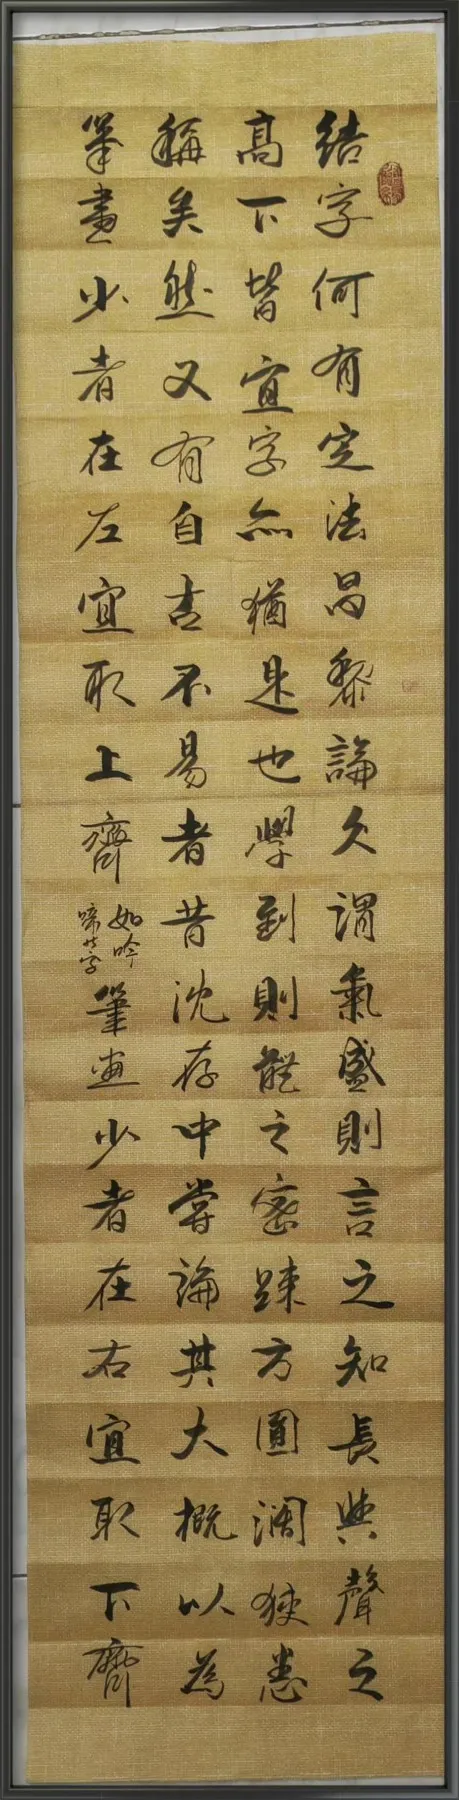 結字何有定法昌黎論久謂氣盛則言之知長與聲之
高下皆宜字亦猶是也學到則能之密疎方圓濶狹悉
稱矣然又有自古不易者昔沈存中嘗論其大概以為
筆畫少者在左宜取上齊如吟啼等字筆畫少者在右宜取下齊